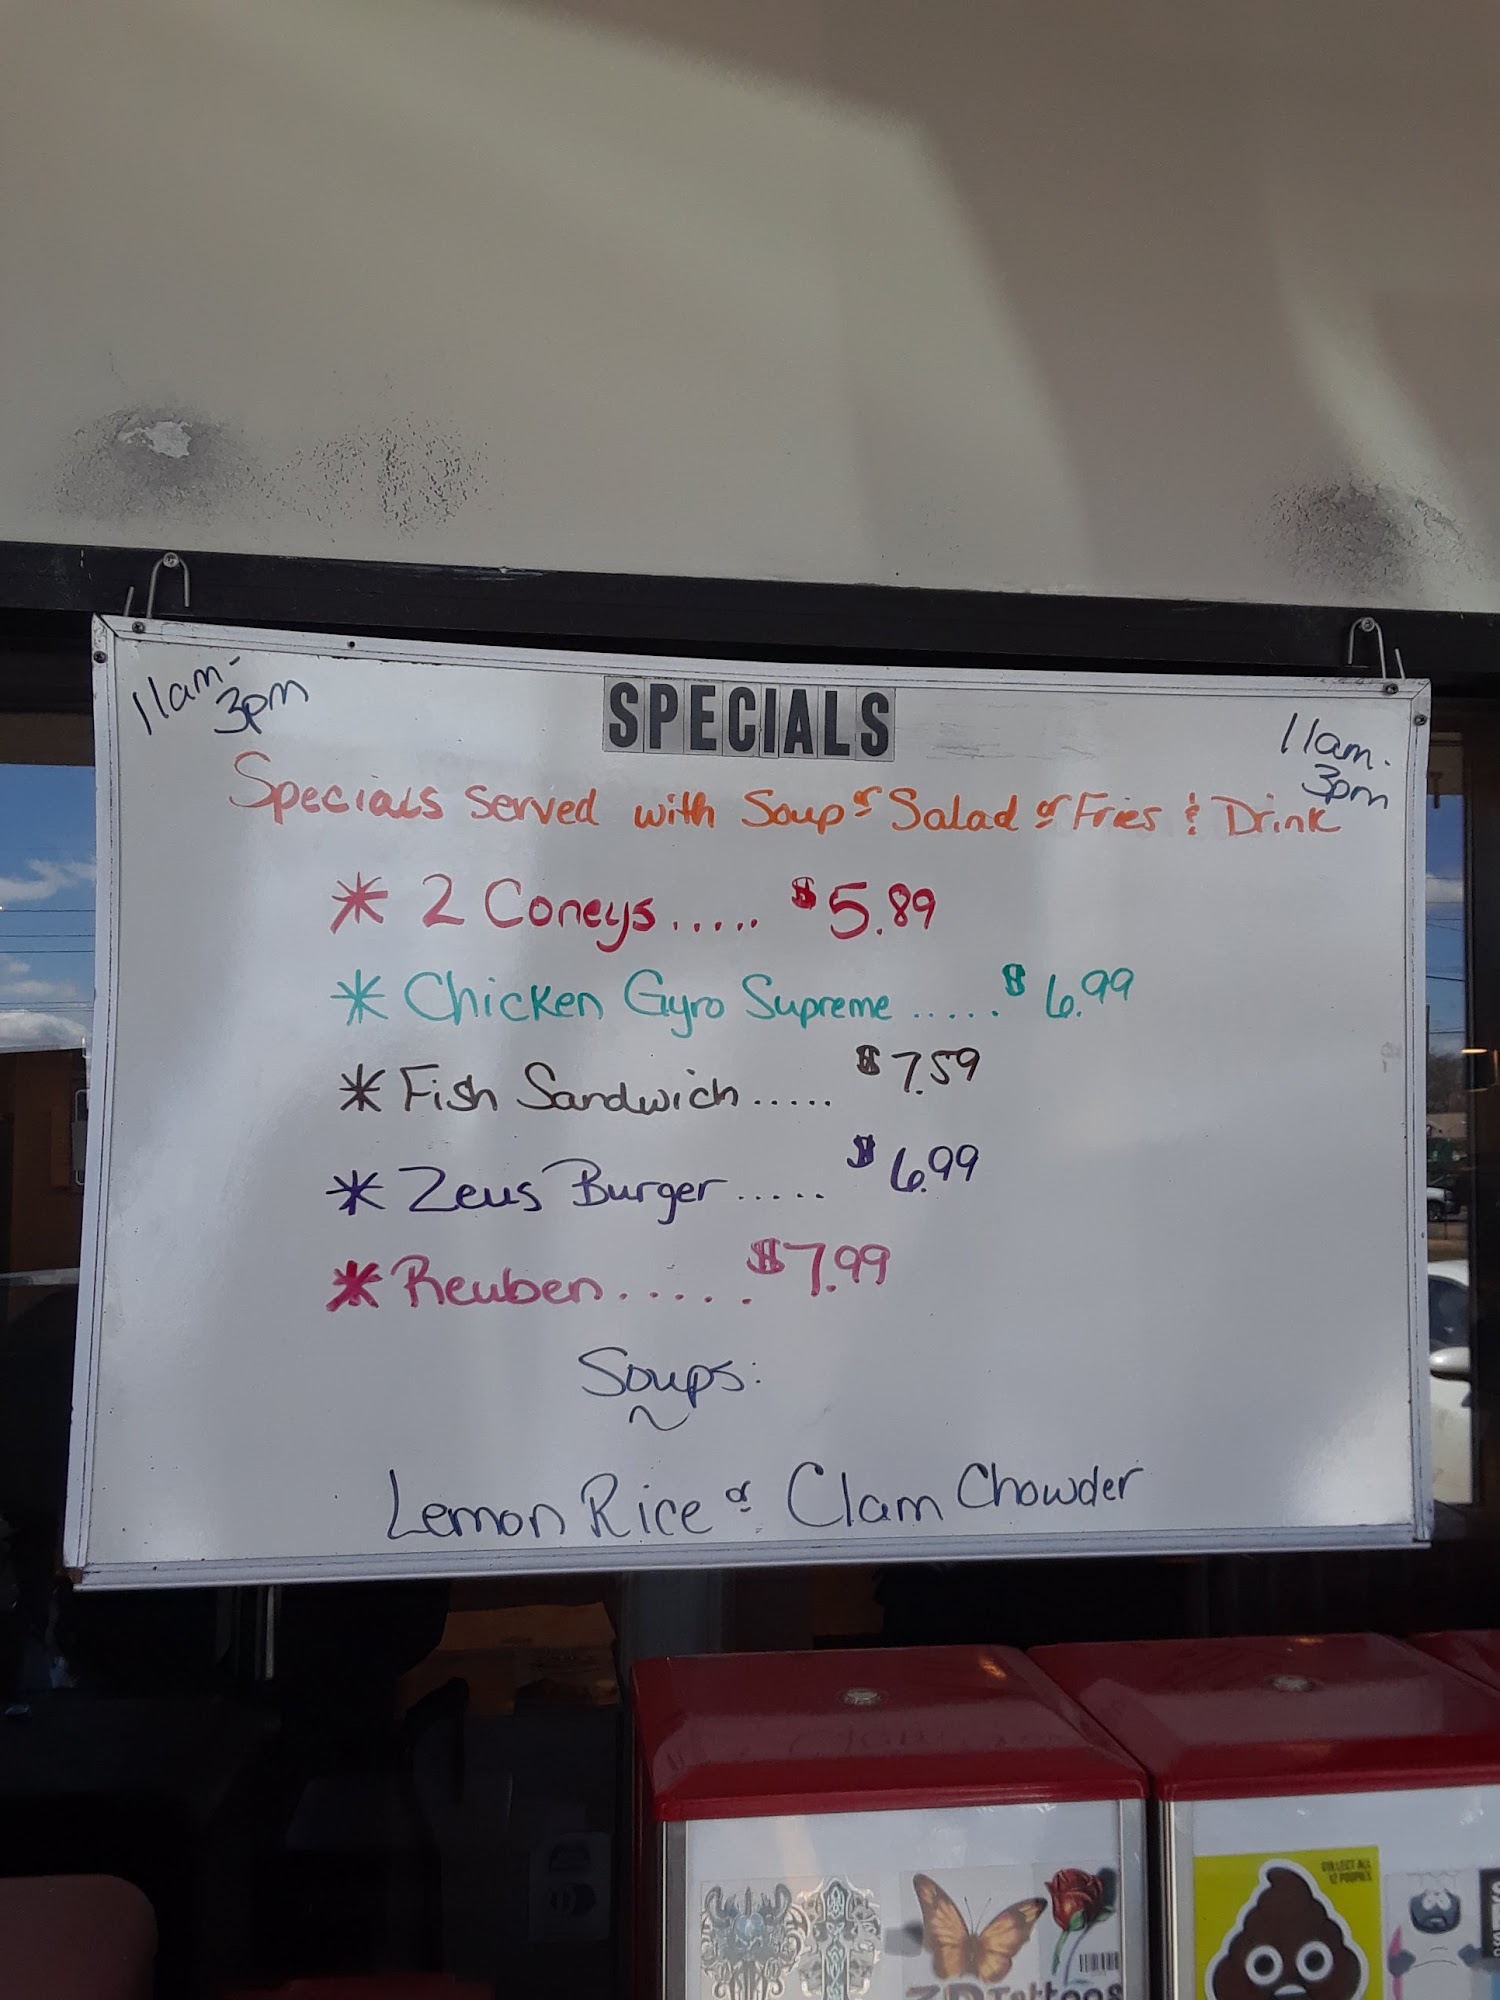 11am-
3pm
SPECIALS
11am.
3pm
Specials Served with Soup or Salad or Fries & Drink
* 2 Coneys..... $5.89
* Chicken Gyro Supreme ..... $6.99
* Fish Sandwich ..... $7.59
* Zeus Burger ..... $6.99
* Reuben..... $7.99
Soups:
Lemon Rice or Clam Chowder
COLLECT ALL
12 POOPIES
3D Tattoos